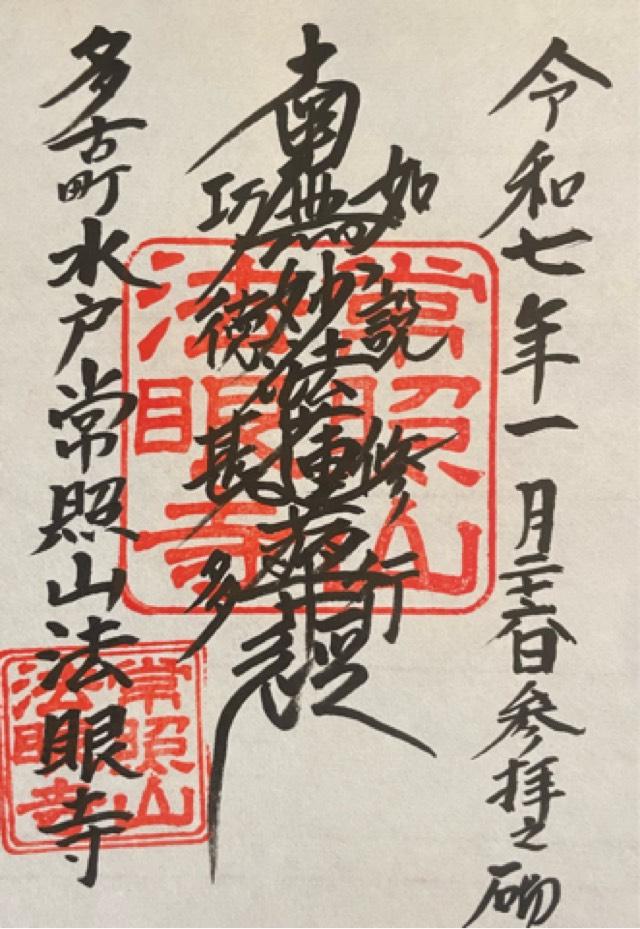 令和七年一月二十六日参拝之砌
如説修行
南無妙法蓮華経
功徳甚多
多古町水戸常照山法眼寺
常照山
法眼寺
常照山
法眼寺